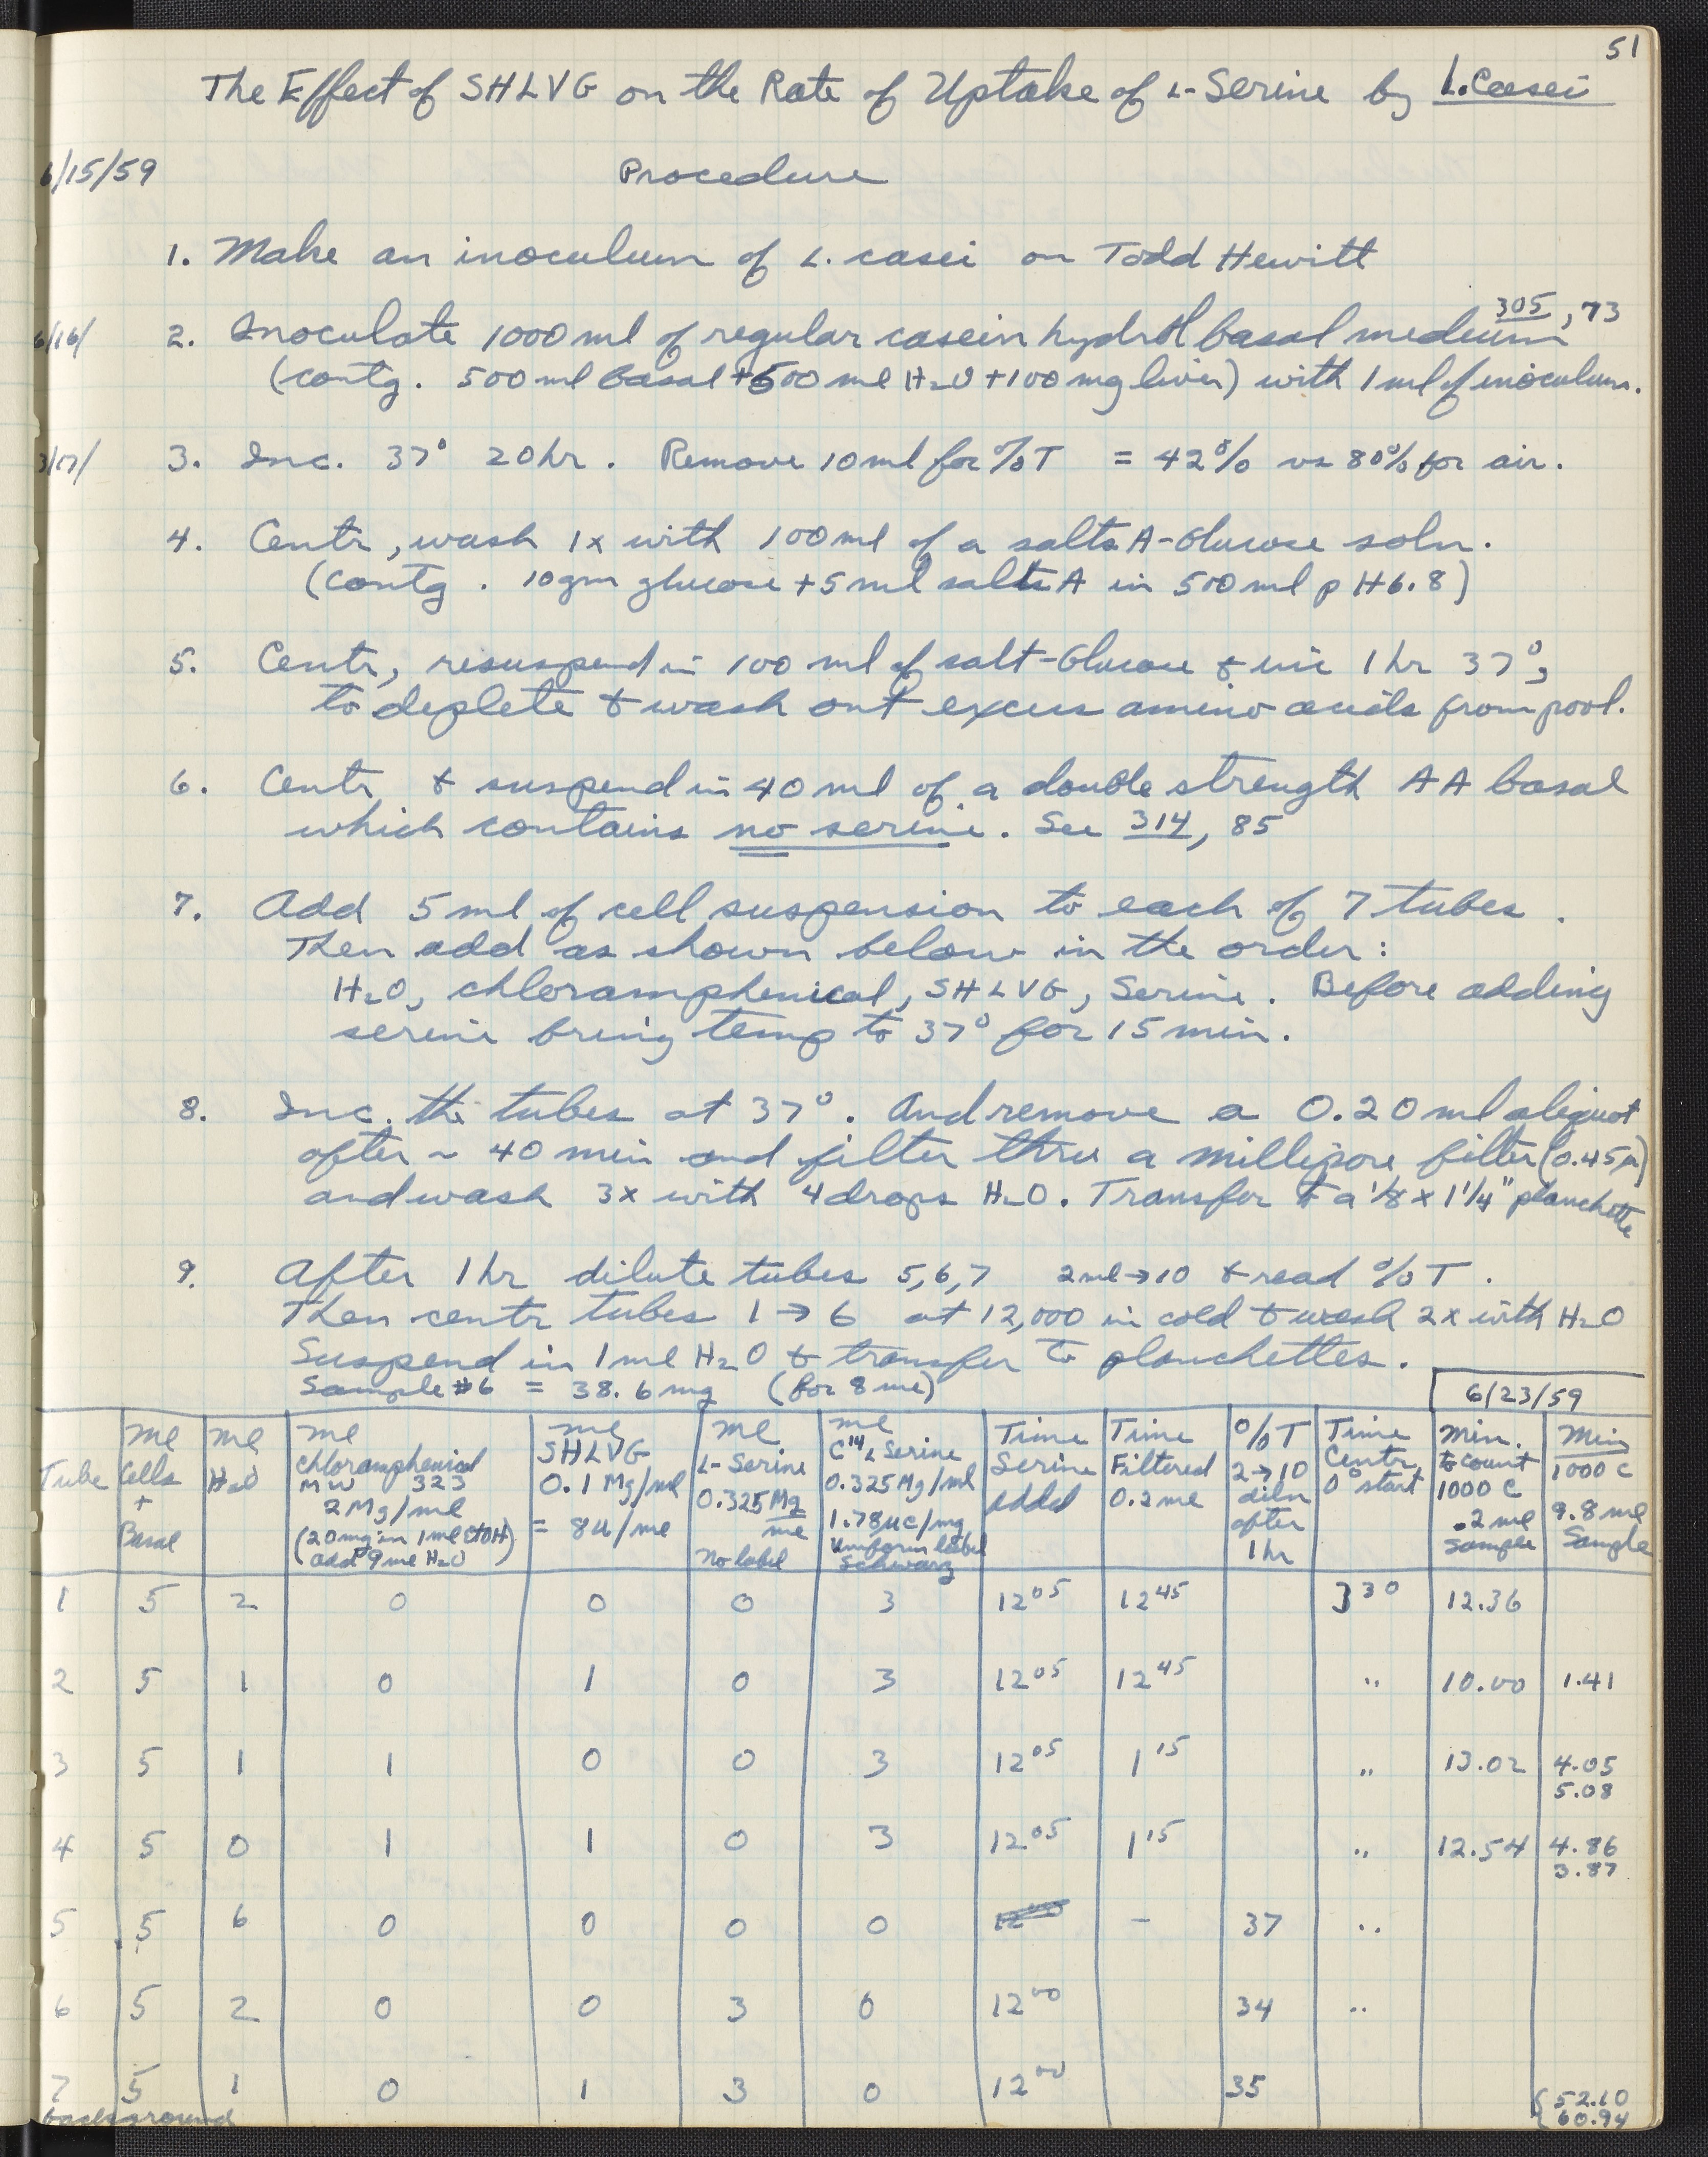 51
The Effect of SHLVG on the Rate of Uptake of L-Serine by L. Casei
6/15/59
Procedure
1. Make an inoculum of L. casei on Todd Hewitt
6/16/ 2. Inoculate 1000 ml of regular casein hydrol basal medium 305, 73
(contg. 500 ml basal + 500 ml H2O + 100 mg liver) with 1 ml of inoculum.
/17/ 3. Inc. 37° 20 hr. Remove 10 ml for %T = 42% vs 80% for air.
4. Centr, wash 1x with 100 ml of a salts A-Glucose soln.
(contg. 10 gm glucose + 5 ml salts A in 500 ml pH 6.8)
5. Centr, resuspend in 100 ml of salt-Glucose & inc 1 hr 37°,
to deplete & wash out excess amino acids from pool.
6. Centr & suspend in 40 ml of a double strength AA basal
which contains no serine. See 314, 85
7. Add 5 ml of cell suspension to each of 7 tubes.
Then add as shown below in the order:
H2O, chloramphenical, SHLVG, Serine. Before adding
serine bring temp to 37° for 15 min.
8. Inc. the tubes at 37°. And remove a 0.20 ml aliquot
after ~ 40 min and filter thru a millipore filter (0.45µ)
and wash 3x with 4 drops H2O. Transfer to a 1/8 x 1 1/4" planchette
9. After 1 hr dilute tubes 5,6,7 2 ml → 10 & read %T.
Then centr tubes 1 → 6 at 12,000 in cold & wash 2x with H2O
Suspend in 1 ml H2O & transfer to planchettes.
Sample #6 = 38.6 mg (for 8 ml)
6/23/59
Tube | ml Cells + Basal | ml H2O | ml chloramphenical MW 323 2 Mg/ml (20 mg in 1 ml EtOH add 9 ml H2O) | ml SHLVG 0.1 Mg/ml = 8u/ml | ml L-Serine 0.325 Mg/ml No label | ml C14 L Serine 0.325 Mg/ml 1.78 uc/mg Uniform label Schwarz | Time Serine added | Time Filtered 0.2 ml | %T 2→10 diln after 1 hr | Time Centr 0° start | Min. to count 1000 C .2 ml sample | Min 1000 C 9.8 ml Sample
1 5 2 0 0 0 3 12 05 12 45 3 30 12.36
2 5 1 0 1 0 3 12 05 12 45 " 10.00 1.41
3 5 1 1 0 0 3 12 05 1 15 " 13.02 4.05
5.08
4 5 0 1 1 0 3 12 05 1 15 " 12.54 4.86
3.87
5 5 6 0 0 0 0 - 37 "
6 5 2 0 0 3 0 12 00 34 "
7 5 1 0 1 3 0 12 00 35
background { 52.10
60.94